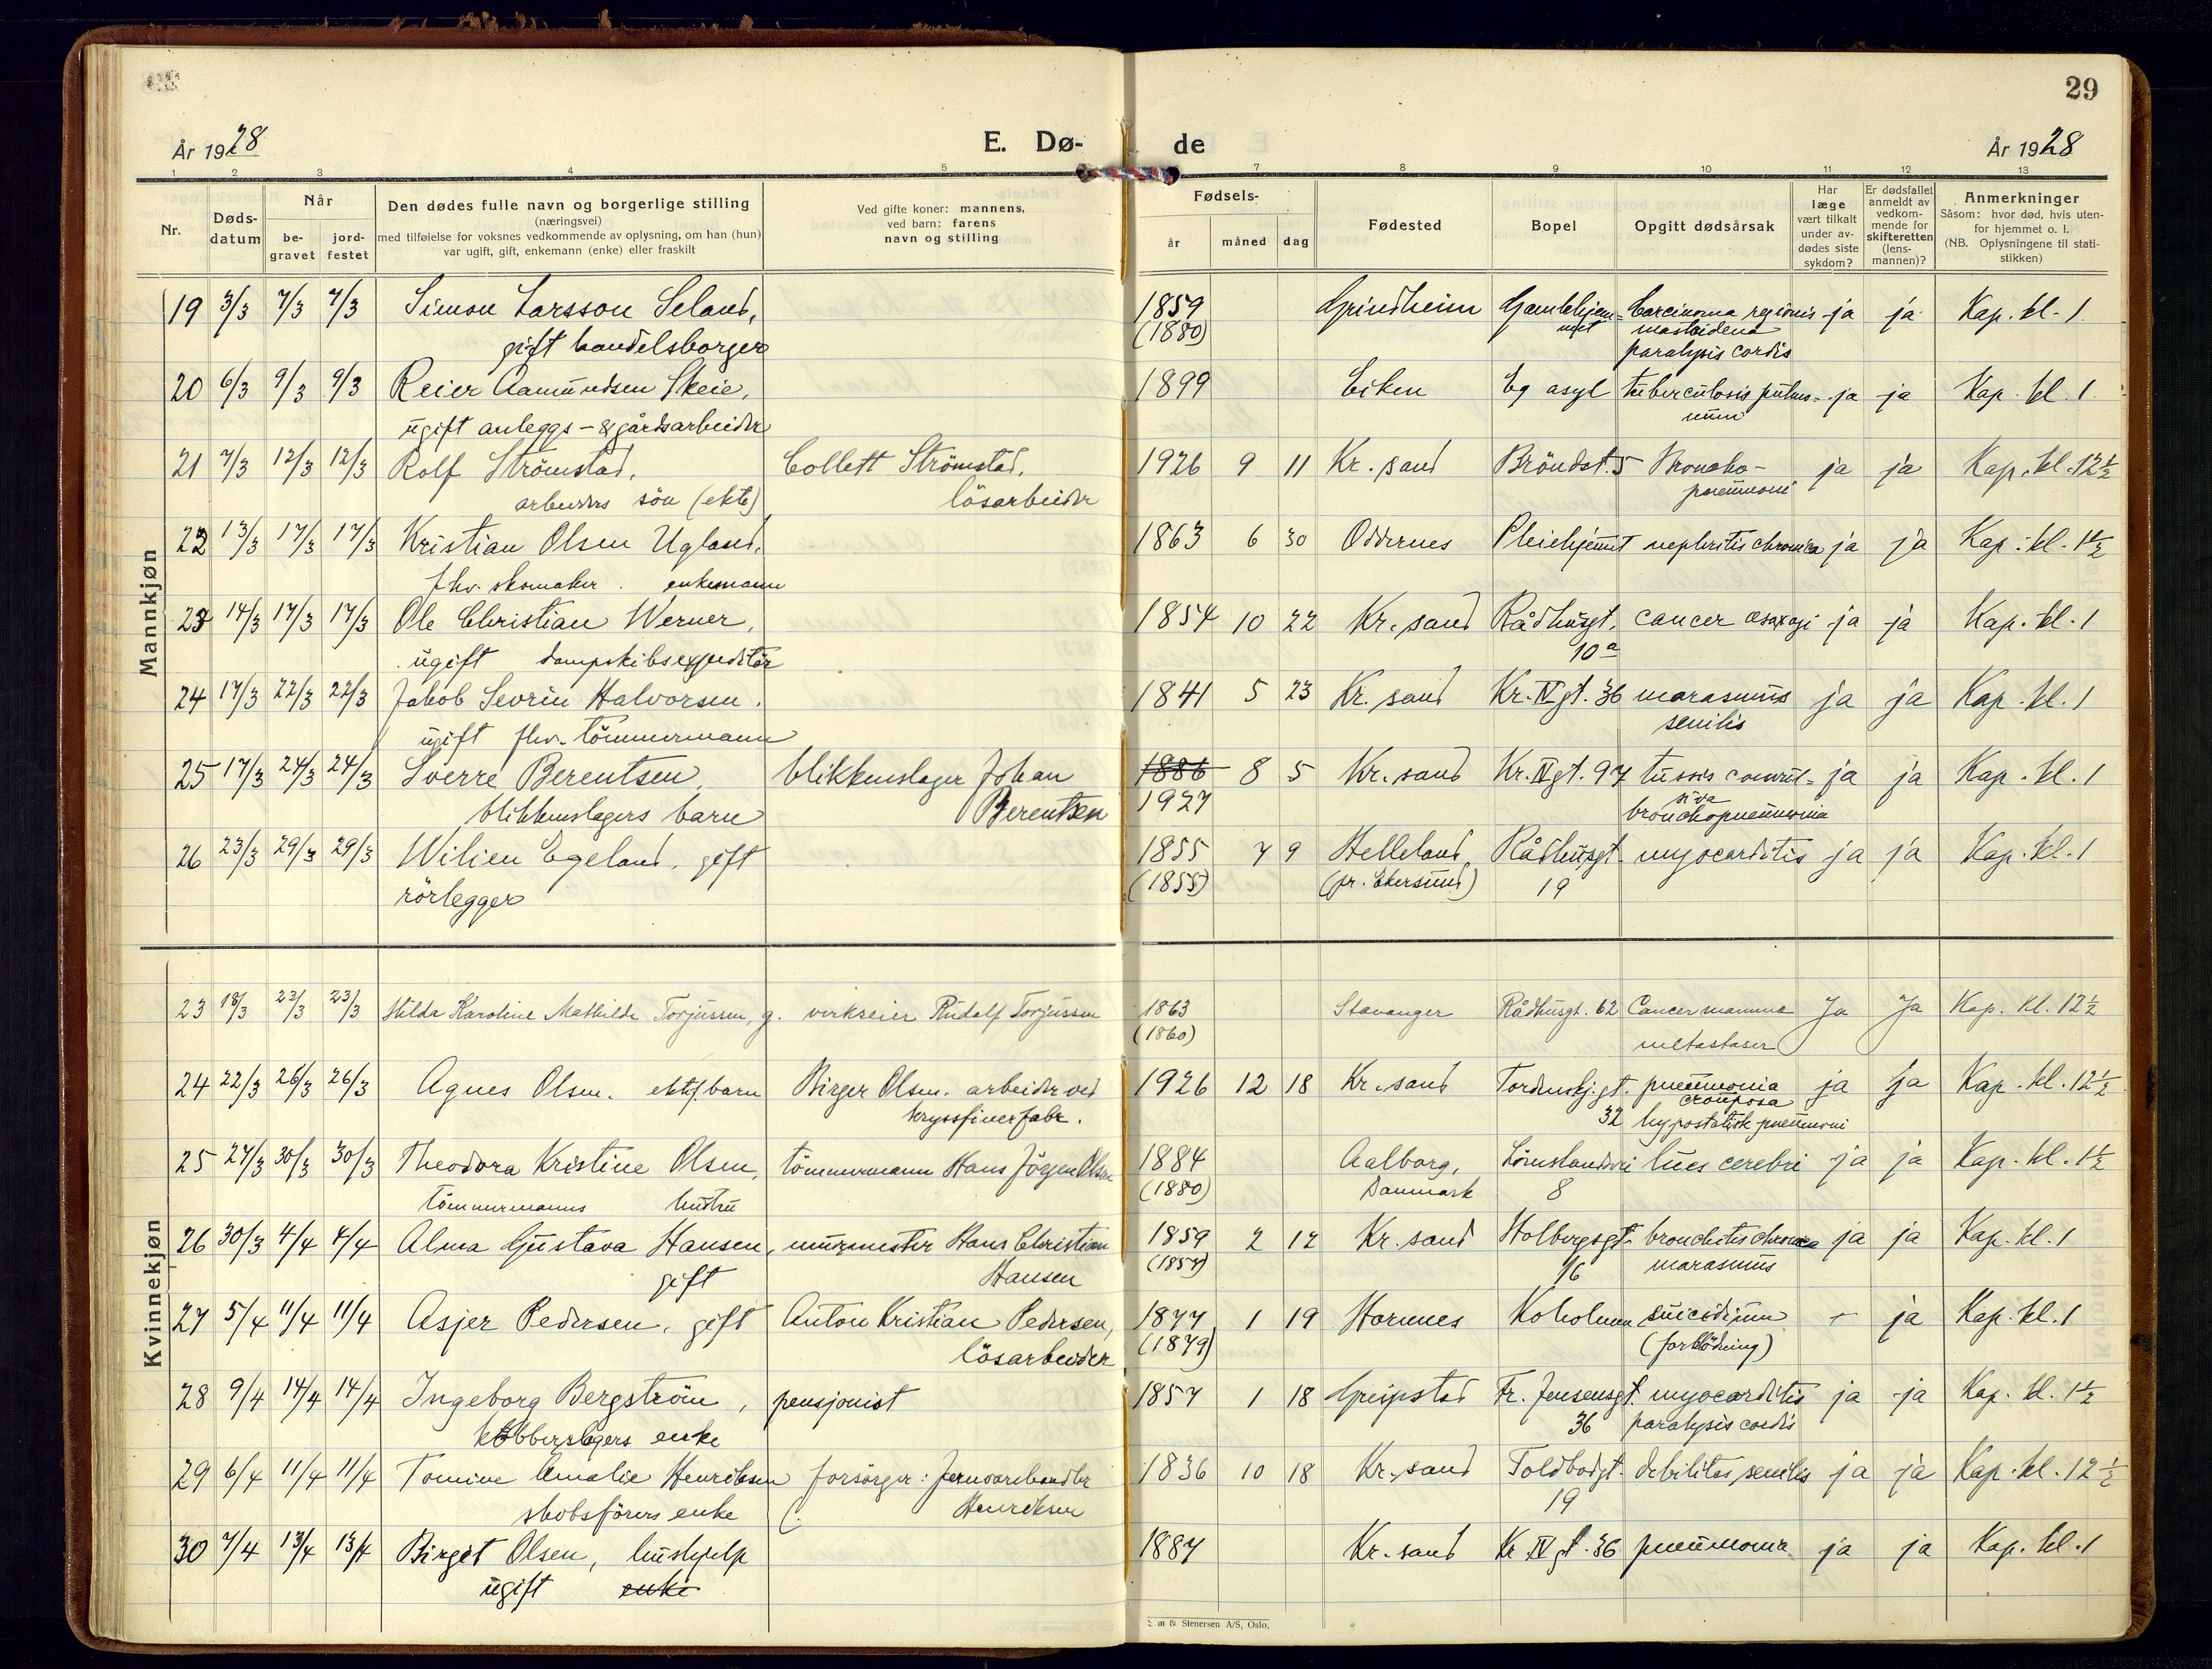 29
År 1928
E. Dø-
de
År 1928
1 2 3 4 5 7 8 9 10 11 12 13
Nr.
Døds-
datum
Når
be-
gravet
jord-
festet
Den dødes fulle navn og borgerlige stilling
(næringsvei)
med tilføielse for voksnes vedkommende av oplysning, om han (hun)
var ugift, gift, enkemann (enke) eller fraskilt
Ved gifte koner: mannens,
ved barn: farens
navn og stilling
Fødsels-
år måned dag
Fødested
Bopel
Opgitt dødsårsak
Har
læge
vært tilkalt
under av-
dødes siste
sykdom?
Er dødsfallet
anmeldt av
vedkom-
mende for
skifteretten
(lens-
mannen)?
Anmerkninger
Såsom: hvor død, hvis uten-
for hjemmet o. l.
(NB. Oplysningene til stati-
stikken)
Mannkjøn
19 3/3 7/3 7/3 Simon Larsson Seland, 1859 Grindheim Gamlehjem- Carcinoma regionis ja ja Kap. kl. 1
gift handelsborger (1880) met mastoidena
paralysis cordis
20 6/3 9/3 9/3 Reier Aamundsen Skeie, 1899 Eiken Eg asyl tuberculosis pulmo- ja ja Kap. kl. 1
ugift anleggs- & gårdsarbeider num
21 7/3 12/3 12/3 Rolf Strömstad, Collett Strömstad, 1926 9 11 Kr. sand Bröndst. 5 Broncho- ja ja Kap. kl. 12 1/2
arbeiders sön (ekte) lösarbeider pneumoni
22 13/3 17/3 17/3 Kristian Olsen Ugland, 1863 6 30 Oddernes Pleiehjemmet nephritis chronica ja ja Kap. kl. 1 1/2
fhv. skomaker. enkemann
23 14/3 17/3 17/3 Ole Christian Werner, 1854 10 22 Kr. sand Rådhusgt. cancer ja ja Kap. kl. 1
ugift dampskibsexpeditör 10 a
24 17/3 22/3 22/3 Jakob Sevrin Halvorsen. 1841 5 23 Kr. sand Kr. IV gt. 36 marasmus ja ja Kap. kl. 1
ugift fhv. tömmermann senilis
25 17/3 24/3 24/3 Sverre Berentsen, blikkenslager Johan 1886 8 5 Kr. sand Kr. IV gt. 97 tussis convul- ja ja Kap. kl. 1
blikkenslagers barn Berentsen 1927 siva
bronchopneumonia
26 23/3 29/3 29/3 Wilien Egeland, gift 1855 7 9 Helleland, Rådhusgt. myocarditis ja ja Kap. kl. 1
rörlegger (1855) (pr. Ekersund) 19
Kvinnekjøn
23 18/3 23/3 23/3 Hilda Karoline Mathilde Torjussen, g. verkseier Rudolf Torjussen 1863 Stavanger Rådhusgt. 62 Cancer mamma Ja Ja Kap. kl. 12 1/2
(1860) metastaser
24 22/3 26/3 26/3 Agnes Olsen. ektef. barn Birger Olsen. arbeider ved 1926 12 18 Kr. sand Tordenskj.gt. pneumonia ja ja Kap. kl. 12 1/2
kryssfinerfabr. 32 crouposa
hypostatisk pneumoni
25 27/3 30/3 30/3 Theodora Kristine Olsen, tömmermann Hans Jörgen Olsen 1884 Aalborg, lues cerebri ja ja Kap. kl. 1 1/2
tömmermanns hustru (1880) Danmark 8
26 30/3 4/4 4/4 Alma Gustava Hansen, murmester Hans Christian 1859 2 12 Kr. sand Holbergsgt. bronchitis chronica ja ja Kap. kl. 1
gift Hansen (1857) 16 marasmus
27 5/4 11/4 11/4 Asjer Pedersen, gift Anton Kristian Pedersen, 1877 1 19 Hornnes Koholmen suicidium - ja Kap. kl. 1
lösarbeider (1879) (forblödning)
28 9/4 14/4 14/4 Ingeborg Bergström, pensjonist 1857 1 18 Greipstad Fr. Jensensgt. myocarditis ja ja Kap. kl. 1 1/2
kobberslagers enke 36 paralysis cordis
29 6/4 11/4 11/4 Tomine Amalie Henriksen forsörger: Jernvarehandler 1836 10 18 Kr. sand Toldbodgt. debilitas senilis ja ja Kap. kl. 12 1/2
skibsförers enke Henriksen 19
30 7/4 13/4 13/4 Birgit Olsen, hushjelp 1887 Kr. sand Kr. IV gt. 36 pneumonia ja ja Kap. kl. 1
ugift enke
& Stenersen A/S, Oslo.